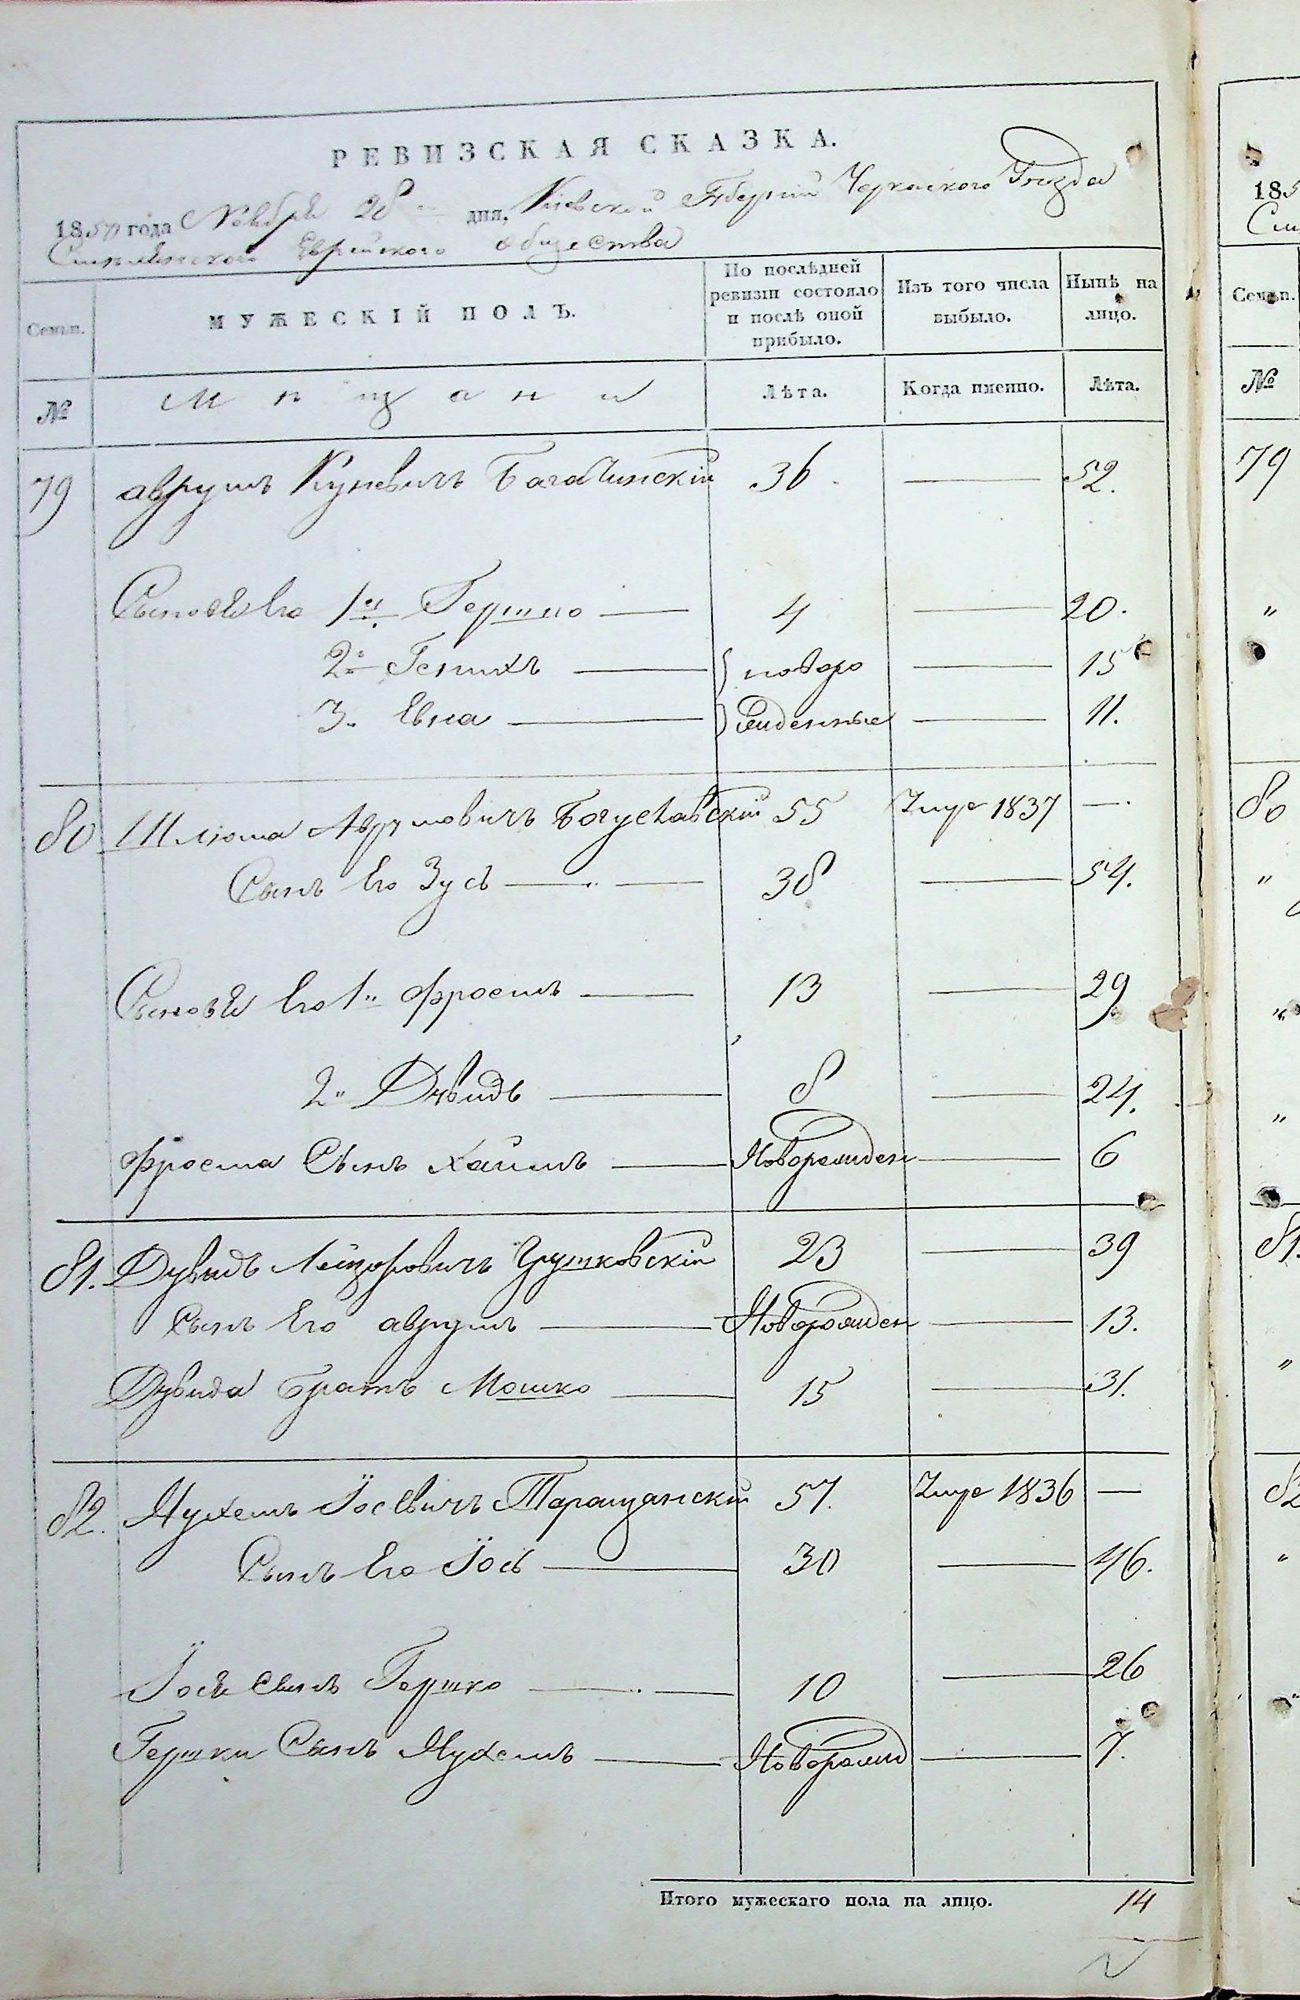 РЕВИЗСКАЯ СКАЗКА.
1850 года Ноября 28 дня, Киевской Губернии Черкаского Уезда
Смилянского Еврейского общества
Семьи. МУЖЕСКІЙ ПОЛЪ. По послѣдней ревизіи состояло и послѣ оной прибыло. Изъ того числа выбыло. Нынѣ на лицо.
№ Мищани Лѣта. Когда именно. Лѣта.
79 Аврумъ Куневичъ 36 — 52.
Сыновья Его 1й Гершко — 4 — 20.
2й Генихъ — новоро 15
3. Евна — жденные 11.
80 Шлиома Аврумовичъ Богуславскій 55 Умре 1837 —
Сынъ Его Зусь — 38 — 54.
Сыновья Его 1й Фроемъ — 13 — 29
2й Дувидъ — 8 — 24.
Фроема Сынъ Хаимъ — Новорожден — 6
81. Дувидъ Лейзоровичъ 23 — 39
Сынъ Его Аврумъ — Новорожден — 13.
Дувида братъ Мошко — 15 — 31.
82. Нухемъ Іосевичъ Таращанскій 57. Умре 1836 —
Сынъ Его Іось — 30 — 46.
Іося сынъ Гершко — 10 — 26
Гершки Сынъ Нухемъ — Новорожд — 7.
Итого мужескаго пола на лицо. 14
185
См
Семьи.
№
79
"
80
"
"
"
81.
"
82
"